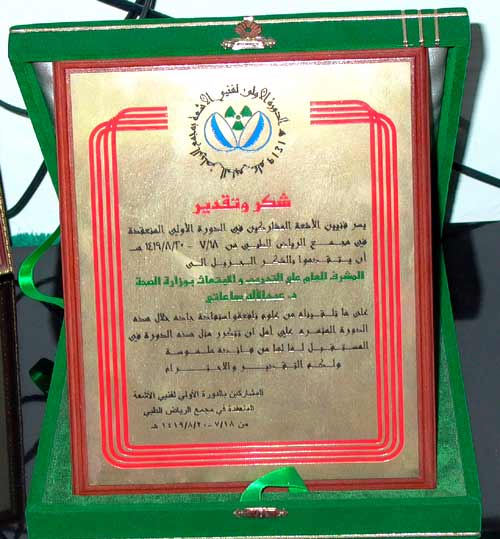 الدورة الأولى لفنيي الأشعة بمجمع الرياض الطبي عام ١٤١٩ هـ
شكر وتقدير
يسر فنيين الأشعة المشاركين في الدورة الأولى المنعقدة
في مجمع الرياض الطبي من ٧/١٨ - ١٤١٩/٨/٢٠ هـ
أن يتقدموا بالشكر الجزيل الى
المشرف العام على التدريب و الابتعاث بوزارة الصحة
د. عبدالاله ساعاتي
على ما تلقيناه من علوم نافعة واستفادة جاده خلال هذه
الدورة المثمره على أمل ان تتكرر مثل هذه الدورة في
المستقبل لما لها من فائدة ملموسة
ولكم التقدير و الاحترام
المشاركين بالدورة الأولى لفنيي الأشعة
المنعقدة في مجمع الرياض الطبي
من ٧/١٨-١٤١٩/٨/٢٠ هـ